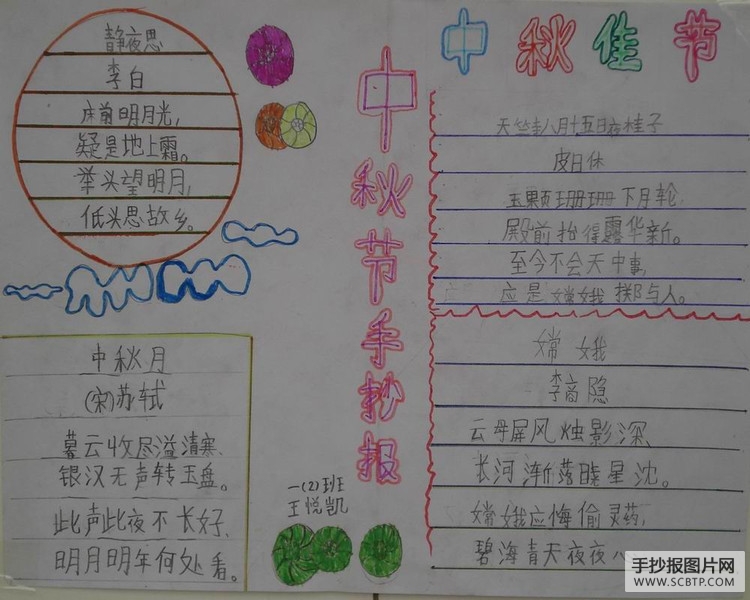 中秋佳节
中秋节手抄报
静夜思
李白
床前明月光,
疑是地上霜。
举头望明月,
低头思故乡。
中秋月
(宋)苏轼
暮云收尽溢清寒、
银汉无声转玉盘。
此声此夜不长好、
明月明年何处看。
一(2)班
王悦凯
天竺寺八月十五日夜桂子
皮日休
玉颗珊珊下月轮,
殿前拾得露华新。
至今不会天中事,
应是嫦娥掷与人。
嫦娥
李商隐
云母屏风烛影深、
长河渐落晓星沈。
嫦娥应悔偷灵药,
碧海青天夜夜
手抄报图片网
WWW.SCBTP.COM